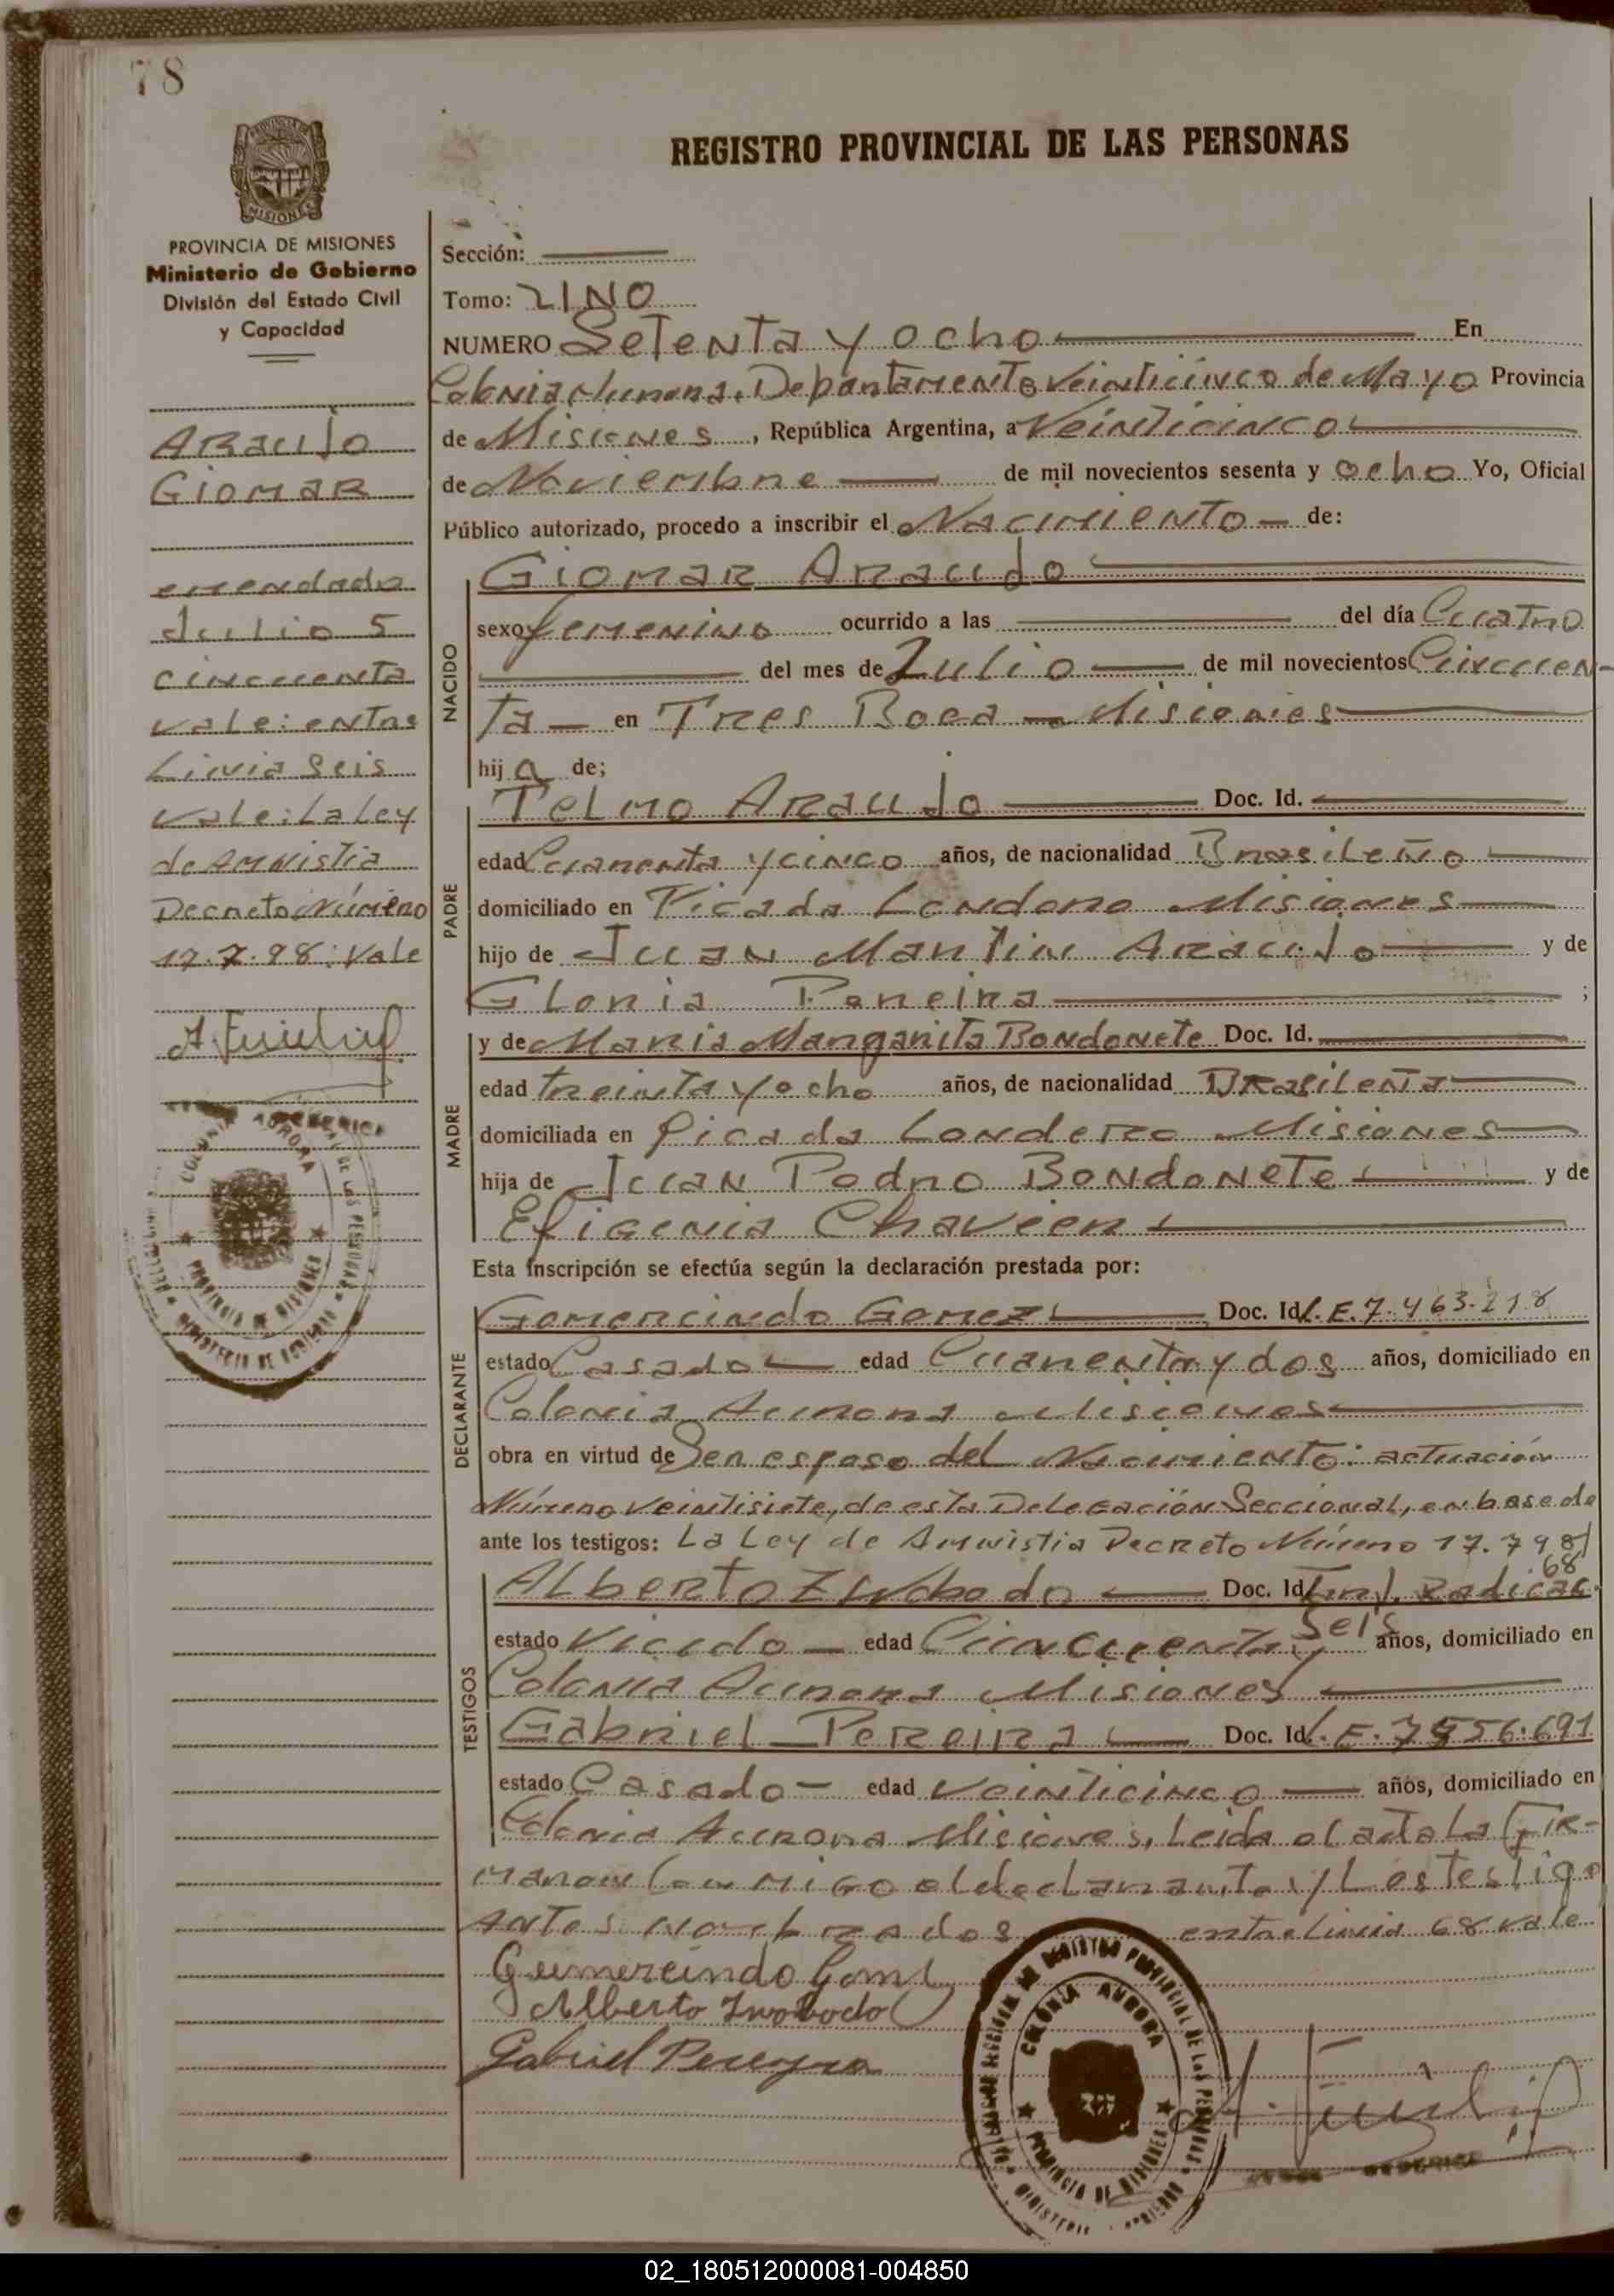 78
REGISTRO PROVINCIAL DE LAS PERSONAS
PROVINCIA DE MISIONES
Ministerio de Gobierno
División del Estado Civil
y Capacidad
ARAUJO
GIOMAR
enmendado
Julio 5
cincuenta
vale: entre
Linia Seis
vale: La Ley
de Amnistia
Decreto Número
17.7.98: Vale
Sección:
Tomo: UNO
NUMERO Setenta y ocho En
Colonia Aurora, Departamento Veinticinco de Mayo Provincia
de Misiones, República Argentina, a Veinticinco
de Noviembre de mil novecientos sesenta y ocho Yo, Oficial
Público autorizado, procedo a inscribir el Nacimiento de:
NACIDO
Giomar Araujo
sexo femenino ocurrido a las del día Cuatro
del mes de Julio de mil novecientos Cincuen-
ta en Tres Boca Misiones
hija de;
PADRE
Telmo Araujo Doc. Id.
edad Cuarenta y cinco años, de nacionalidad Brasileño
domiciliado en Picada Londero Misiones
hijo de Juan Martin Araujo y de
Gloria Pereira ;
MADRE
y de Maria Margarita Bondonete Doc. Id.
edad treinta y ocho años, de nacionalidad Brasileña
domiciliada en Picada Londero Misiones
hija de Juan Pedro Bondonete y de
Efigenia
Esta inscripción se efectúa según la declaración prestada por:
DECLARANTE
Gomercindo Gomez Doc. Id L.E. 7.463.218
estado Casado edad Cuarenta y dos años, domiciliado en
Colonia Aurora Misiones
obra en virtud de Ser esposo del Nacimiento: actuación
Número veintisiete, de esta Delegación Seccional, en base de
ante los testigos: La Ley de Amnistia Decreto Número 17.798/
68
TESTIGOS
Alberto Doc. Id Radicac.
estado Viudo edad Cincuenta y Seis años, domiciliado en
Colonia Aurora Misiones
Gabriel Pereira Doc. Id L.E. 7556.691
estado Casado edad veinticinco años, domiciliado en
Colonia Aurora Misiones, Leida el acta La Fir-
maron Conmigo el declarante y Los testigo
Antes Nombrados entrelinia 68 vale
Gumercindo Gomez
Alberto
Gabriel Pereyra
COLONIA AURORA
PROVINCIA DE MISIONES
02_180512000081-004850